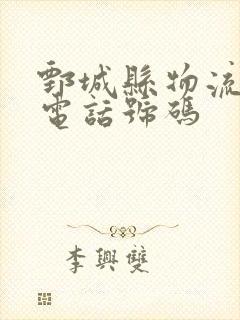 鄄城縣物流
電話號碼
李興雙